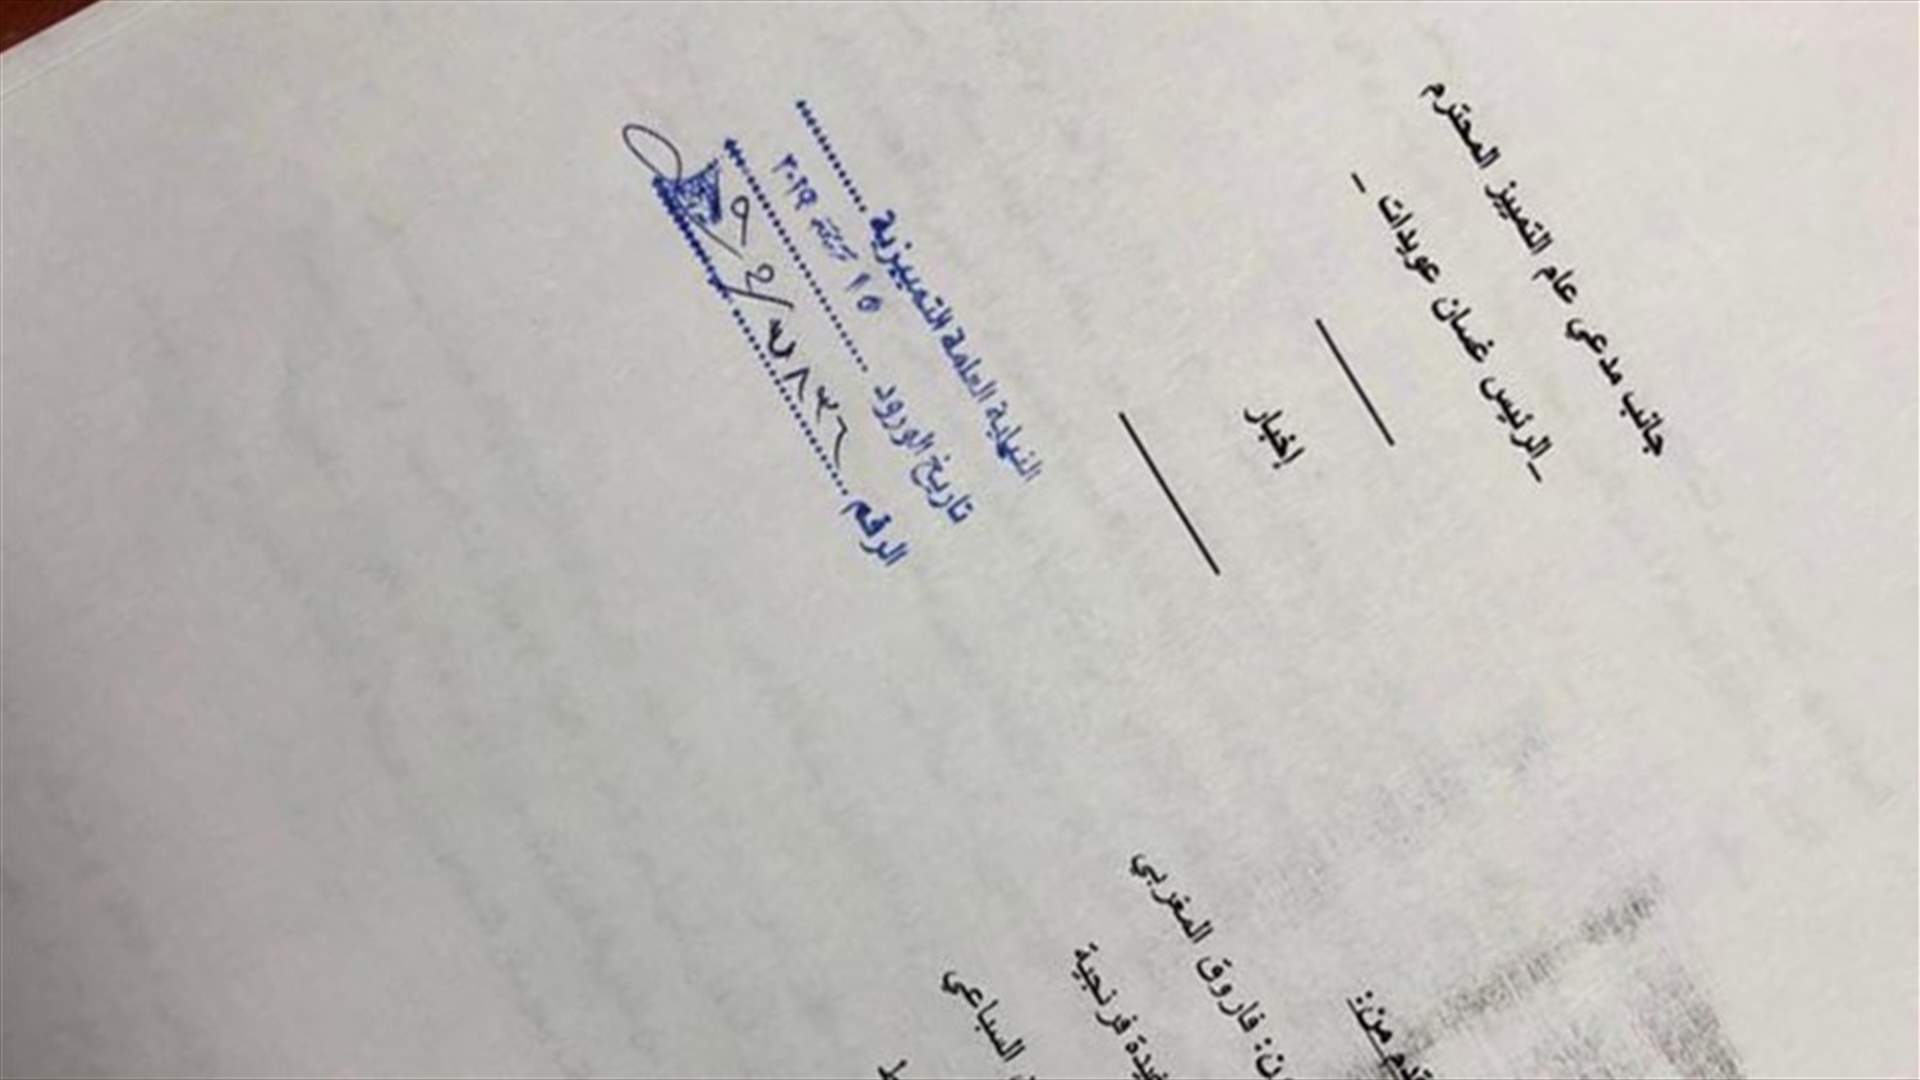 جانب مدعي عام التمييز المحترم
- الرئيس غسان عويدات -
إخبار
النيابة العامة التمييزية
تاريخ الورود ١٥ ٢٠١٩
الرقم
قدم من:
ون: فاروق المغربي
غيدة فرنجية
السباعي